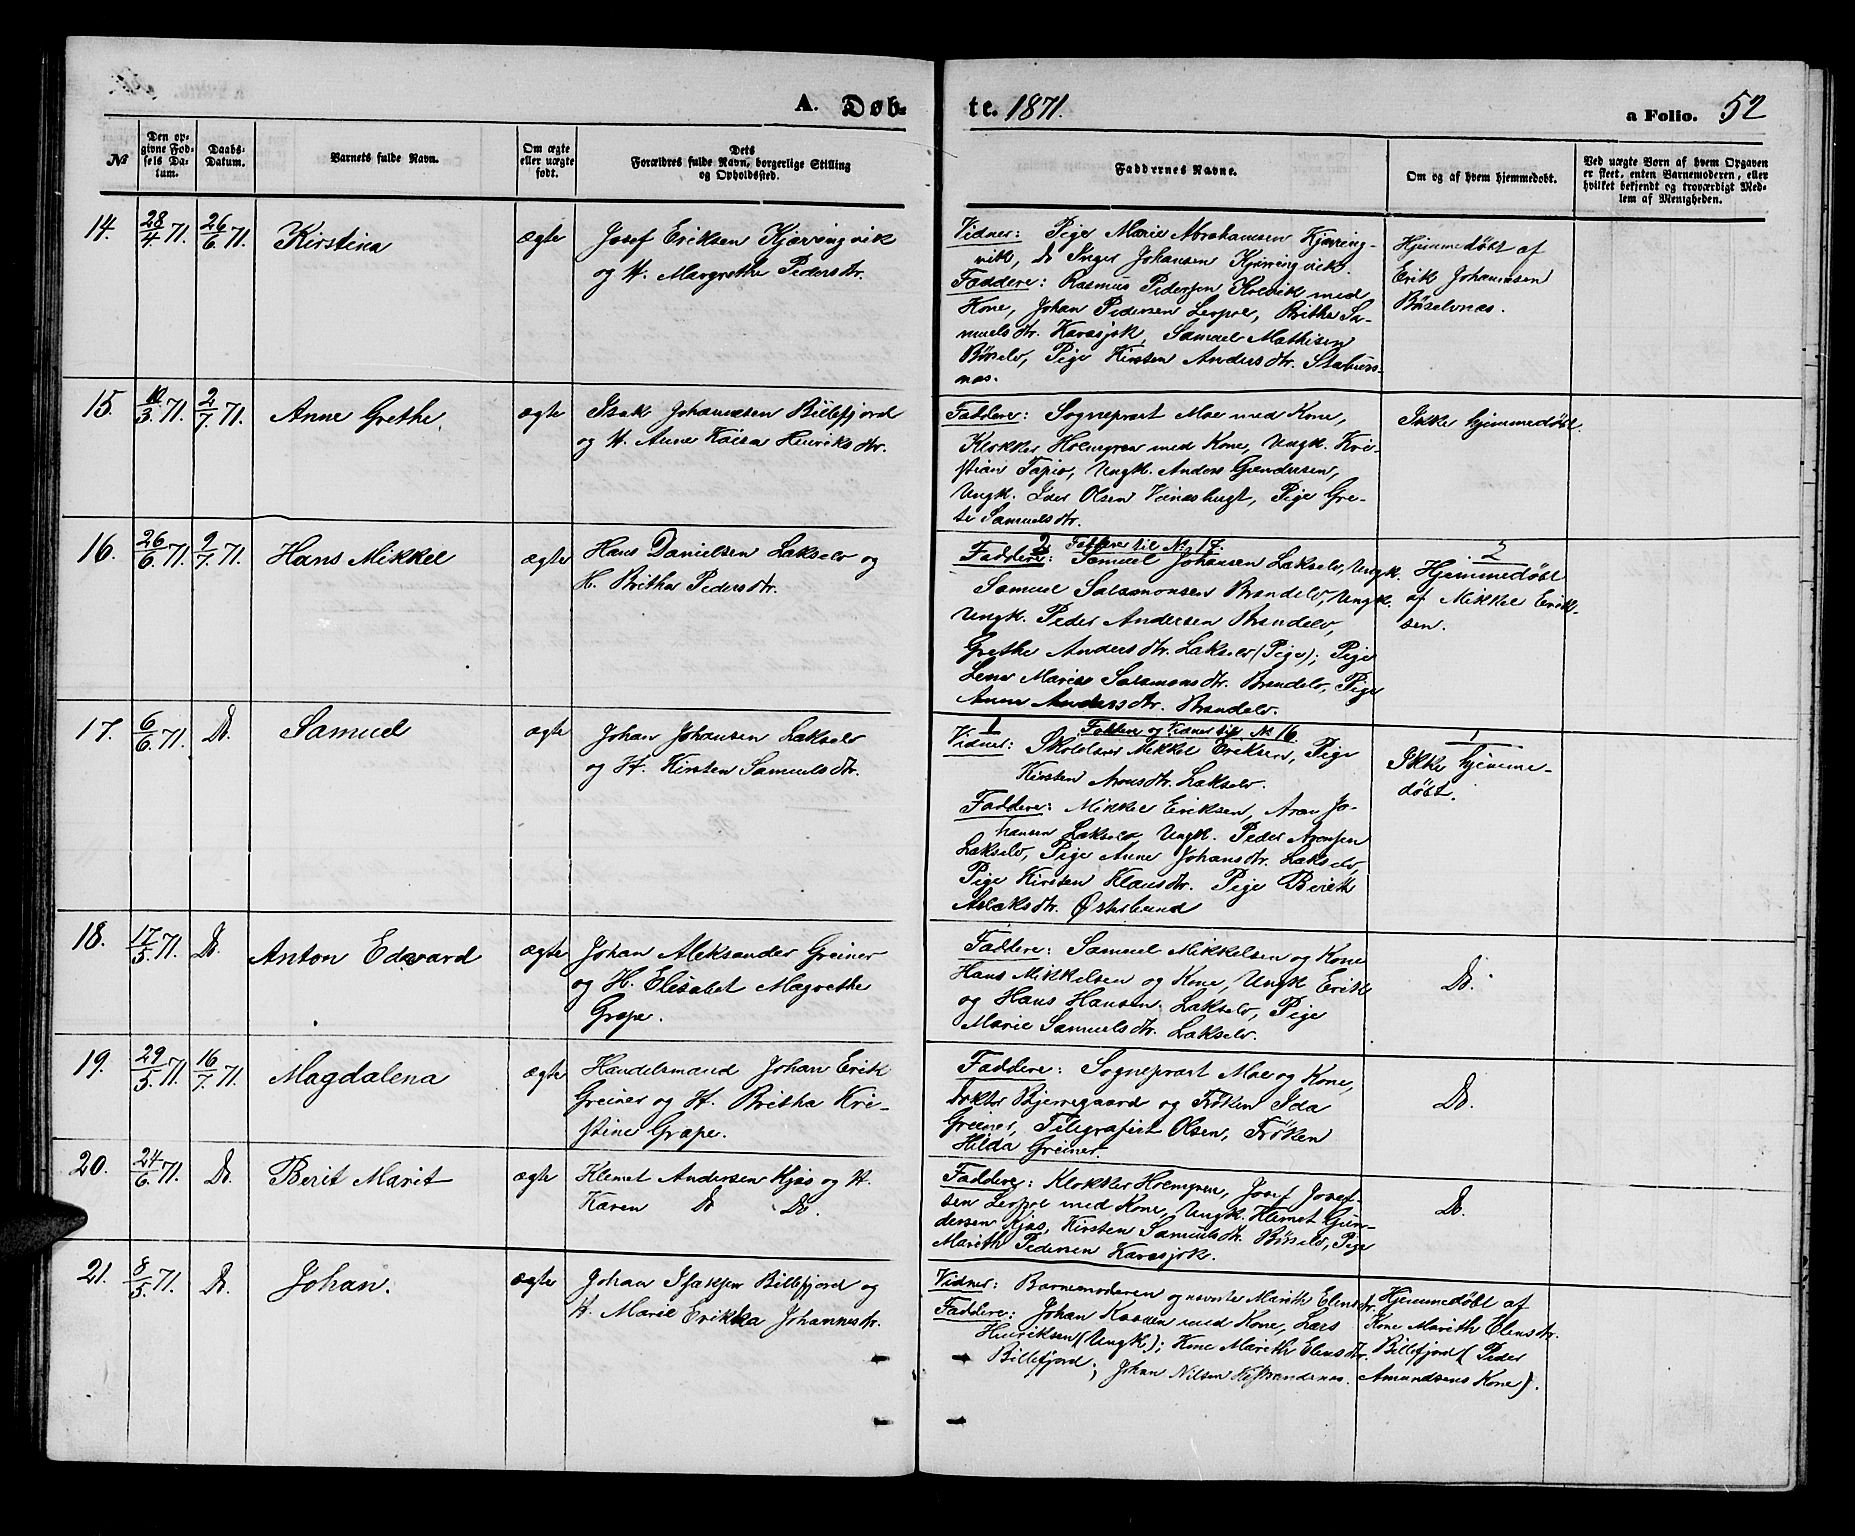 A. Døb-
te. 1871.
a Folio. 52
№
Den op-
givne Fød-
sels Da-
tum.
Daabs-
Datum.
Barnets fulde Navn.
Om ægte
eller uægte
født.
Dets
Forældres fulde Navn, borgerlige Stilling
og Opholdssted.
Faddernes Navne.
Om og af hvem hjemmedøbt.
Ved uægte Børn af hvem Opgaven
er skeet, enten Barnemoderen, eller
hvilket bekjendt og troværdigt Med-
lem af Menigheden.
14.
28/4 71.
26/6 71.
Kirstina
ægte
Josef Eriksen Kjærringvik
og H. Margrethe Pedersdtr.
Vidner: Pige Marie Abrahamsen Kjærring-
vik, Do Inger Johansen Kjærringvik.
Faddere: Rasmus Pedersen med
Kone, Johan Pedersen Lerpol, Brithe Sa-
muelsdtr. Karasjok, Samuel Mathisen
Børselv, Pige Kirsten Andersdtr. Staburs-
næs.
Hjemmedøbt af
Erik Johannsen
Børselvnæs.
15.
10/3 71.
2/7 71.
Anne Grethe.
ægte
Isak Johannesen Billefjord
og H. Anne Kaisa Henriksdtr.
Faddere: Sognepræst Moe med Kone,
Klokker Holmgren med Kone, Ungk. Kri-
stian Tapio, Ungk. Anders Gundersen,
Ungk. Iver Olsen, Pige Gre-
te Samuelsdtr.
Ikke hjemmedøbt.
16.
26/6 71.
9/7 71.
Hans Mikkel
ægte
Hans Danielsen Lakselv og
H. Britha Pedersdtr.
2 Faddere til No. 17.
Faddere: Samuel Johansen Lakselv, Ungk.
Samuel Salamonsen Brandelv, Ungk.
Ungk. Peder Andersen Brandelv,
Grethe Andersdtr. Lakselv (Pige); Pige
Lena Marie Salamonsdtr. Brandelv, Pige
Anne Andersdtr. Brandelv.
2
Hjemmedøbt
af Mikkel Erik-
sen.
17.
6/6 71.
Do.
Samuel
ægte
Johan Johansen Lakselv
og H. Kirsten Samuelsdtr.
1 Faddere og Vidner til No 16
Vidner: Skolelærer Mikkel Eriksen, Pige
Kirsten Aronsdtr. Lakselv.
Faddere: Mikkel Eriksen, Aron Jo-
hansen Lakselv Ungk. Peder Aronsen
Lakselv, Pige Anne Johansdtr. Lakselv,
Pige Kirsten Klausdtr. Pige Berith
Aslaksdtr. Østerbund
1
Ikke hjemme-
døbt.
18.
17/5 71.
Do.
Anton Edvard
ægte
Johan Aleksander Greiner
og H. Elisabet Magrethe
Grape.
Faddere: Samuel Mikkelsen og Kone
Hans Mikkelsen og Kone, Ungk Erik
og Hans Hansen Lakselv, Pige
Marie Samuelsdtr. Lakselv.
Do.
19.
29/5 71.
16/7 71.
Magdalena
ægte
Handelsmand Johan Erik
Greiner og H. Britha Kri-
stine Grape.
Faddere: Sognepræst Moe og Kone,
Doktor Bjerregaard og Frøken Ida
Greiner, Telegrafist Olsen, Frøken
Hilda Greiner.
Do.
20.
24/6 71.
Do.
Berit Marit
ægte
Klemet Andersen Kjæs og H.
Karen Do Do.
Faddere: Klokker Holmgren, Josef Josef-
sen Lerpol med Kone, Ungk. Klemet Gun-
dersen Kjæs, Kirsten Samuelsdtr. Børselv, Pige
Marith Pedersen Karasjok.
Do.
21.
8/5 71.
Do.
Johan.
ægte
Johan Isaksen Billefjord og
H. Marie Erikka Johannesdtr.
Vidner: Barnemoderen og nævnte Marith Elensdtr.
Faddere: Johan Kaaden med Kone, Lars
Henriksen (Ungk); Kone Marith Elensdtr.
Billefjord; Johan Nilsen
Hjemmedøbt af
Kone Marith Elensdtr.
Billefjord (Peder
Amundsens Kone).